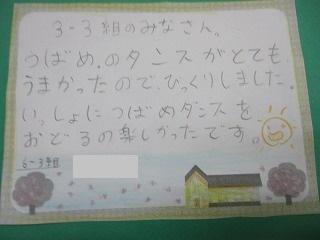 3-3組のみなさん。
つばめ。のダンスがとても
うまかったので、びっくりしました。
いっしょに つばめダンスを
おどるの楽しかったです。
6-3組